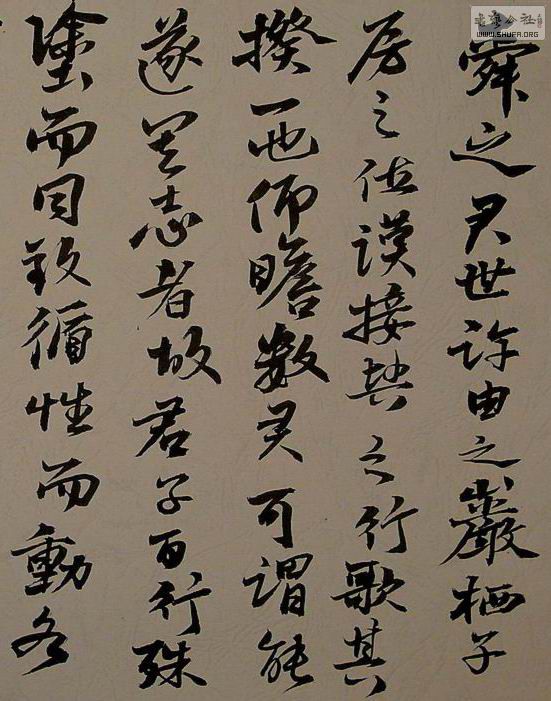 書藝公社
WWW.SHUFA.ORG
舜之君世許由之巖栖子
房之佐漢接輿之行歌其
揆一也仰瞻數君可謂能
遂其志者故君子百行殊
塗而同致循性而動各